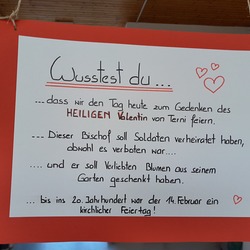 Wusstest du...
...dass wir den Tag heute zum Gedenken des
HEILIGEN Valentin von Terni feiern.
... Dieser Bischof soll Soldaten verheiratet haben,
obwohl es verboten war....
.... und er soll Verliebten Blumen aus seinem
Garten geschenkt haben.
... bis ins 20. Jahrhundert war der 14. Februar ein
kirchlicher Feiertag!